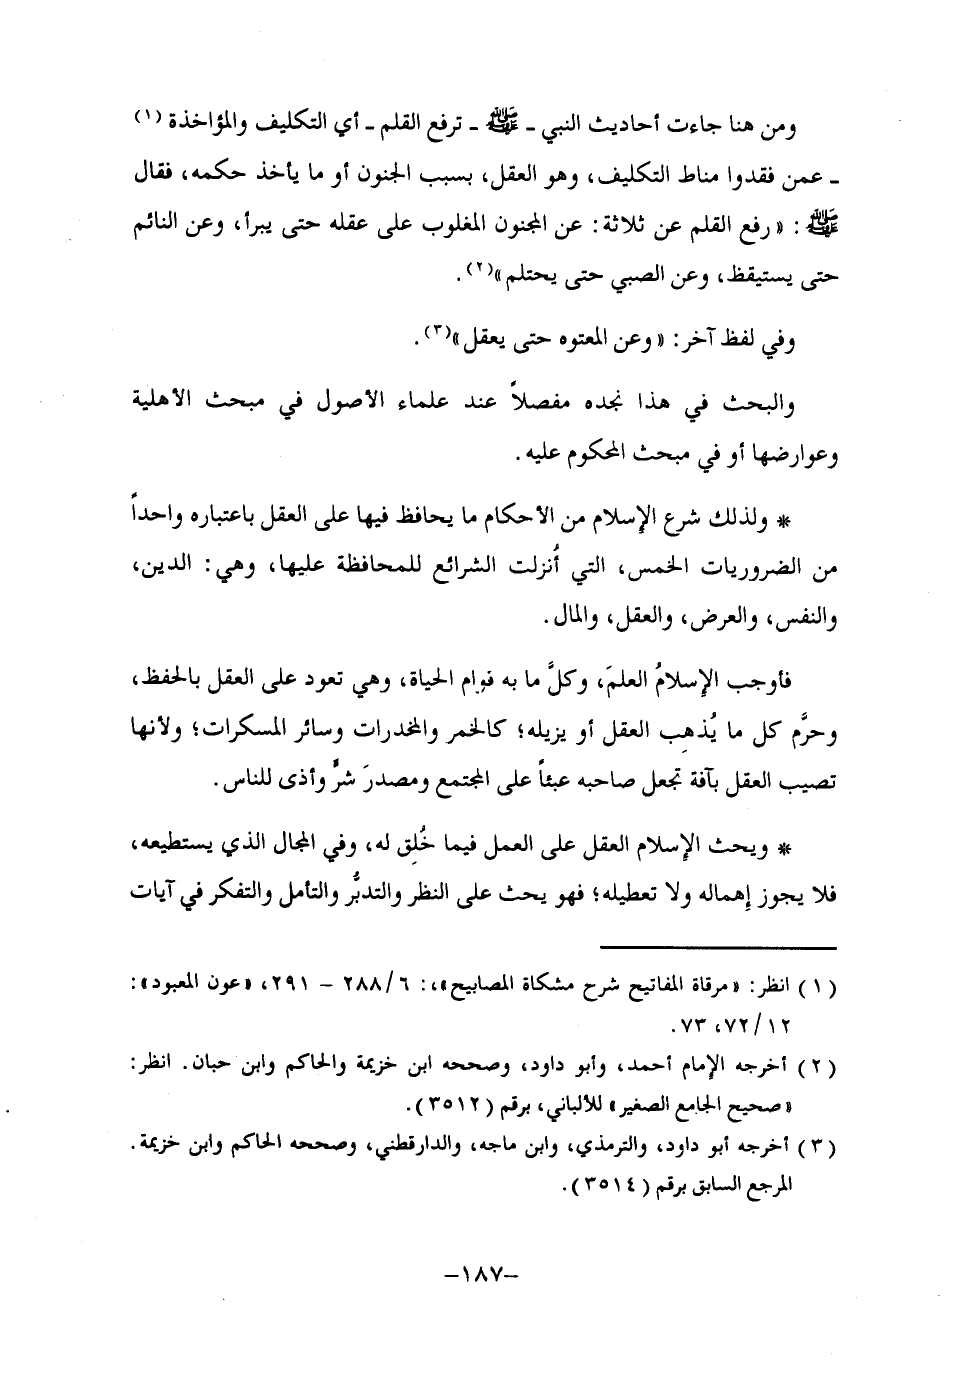 ومن هنا جاءت أحاديث النبي ـ ﷺ ـ ترفع القلم ـ أي التكليف والمؤاخذة (١)
ـ عمن فقدوا مناط التكليف، وهو العقل، بسبب الجنون أو ما يأخذ حكمه، فقال
ﷺ : « رفع القلم عن ثلاثة: عن المجنون المغلوب على عقله حتى يبرأ، وعن النائم
حتى يستيقظ، وعن الصبي حتى يحتلم »(٢).
وفي لفظ آخر: « وعن المعتوه حتى يعقل »(٣).
والبحث في هذا نجده مفصلاً عند علماء الأصول في مبحث الأهلية
وعوارضها أو في مبحث المحكوم عليه.
* ولذلك شرع الإسلام من الأحكام ما يحافظ فيها على العقل باعتباره واحداً
من الضروريات الخمس، التي أُنزلت الشرائع للمحافظة عليها، وهي: الدين،
والنفس، والعرض، والعقل، والمال.
فأوجب الإسلامُ العلمَ، وكلَّ ما به قوام الحياة، وهي تعود على العقل بالحفظ،
وحرَّم كل ما يُذهِب العقل أو يزيله؛ كالخمر والمخدرات وسائر المسكرات؛ ولأنها
تصيب العقل بآفة تجعل صاحبه عبئاً على المجتمع ومصدرَ شرٍّ وأذى للناس.
* ويحث الإسلام العقل على العمل فيما خُلِق له، وفي المجال الذي يستطيعه،
فلا يجوز إهماله ولا تعطيله؛ فهو يحث على النظر والتدبُّر والتأمل والتفكر في آيات
(١) انظر: «مرقاة المفاتيح شرح مشكاة المصابيح»،: ٦/ ٢٨٨ – ٢٩١، «عون المعبود»:
١٢/ ٧٢، ٧٣.
(٢) أخرجه الإمام أحمد، وأبو داود، وصححه ابن خزيمة والحاكم وابن حبان. انظر:
«صحيح الجامع الصغير» للألباني، برقم (٣٥١٢).
(٣) أخرجه أبو داود، والترمذي، وابن ماجه، والدارقطني، وصححه الحاكم وابن خزيمة.
المرجع السابق برقم (٣٥١٤).
–١٨٧–